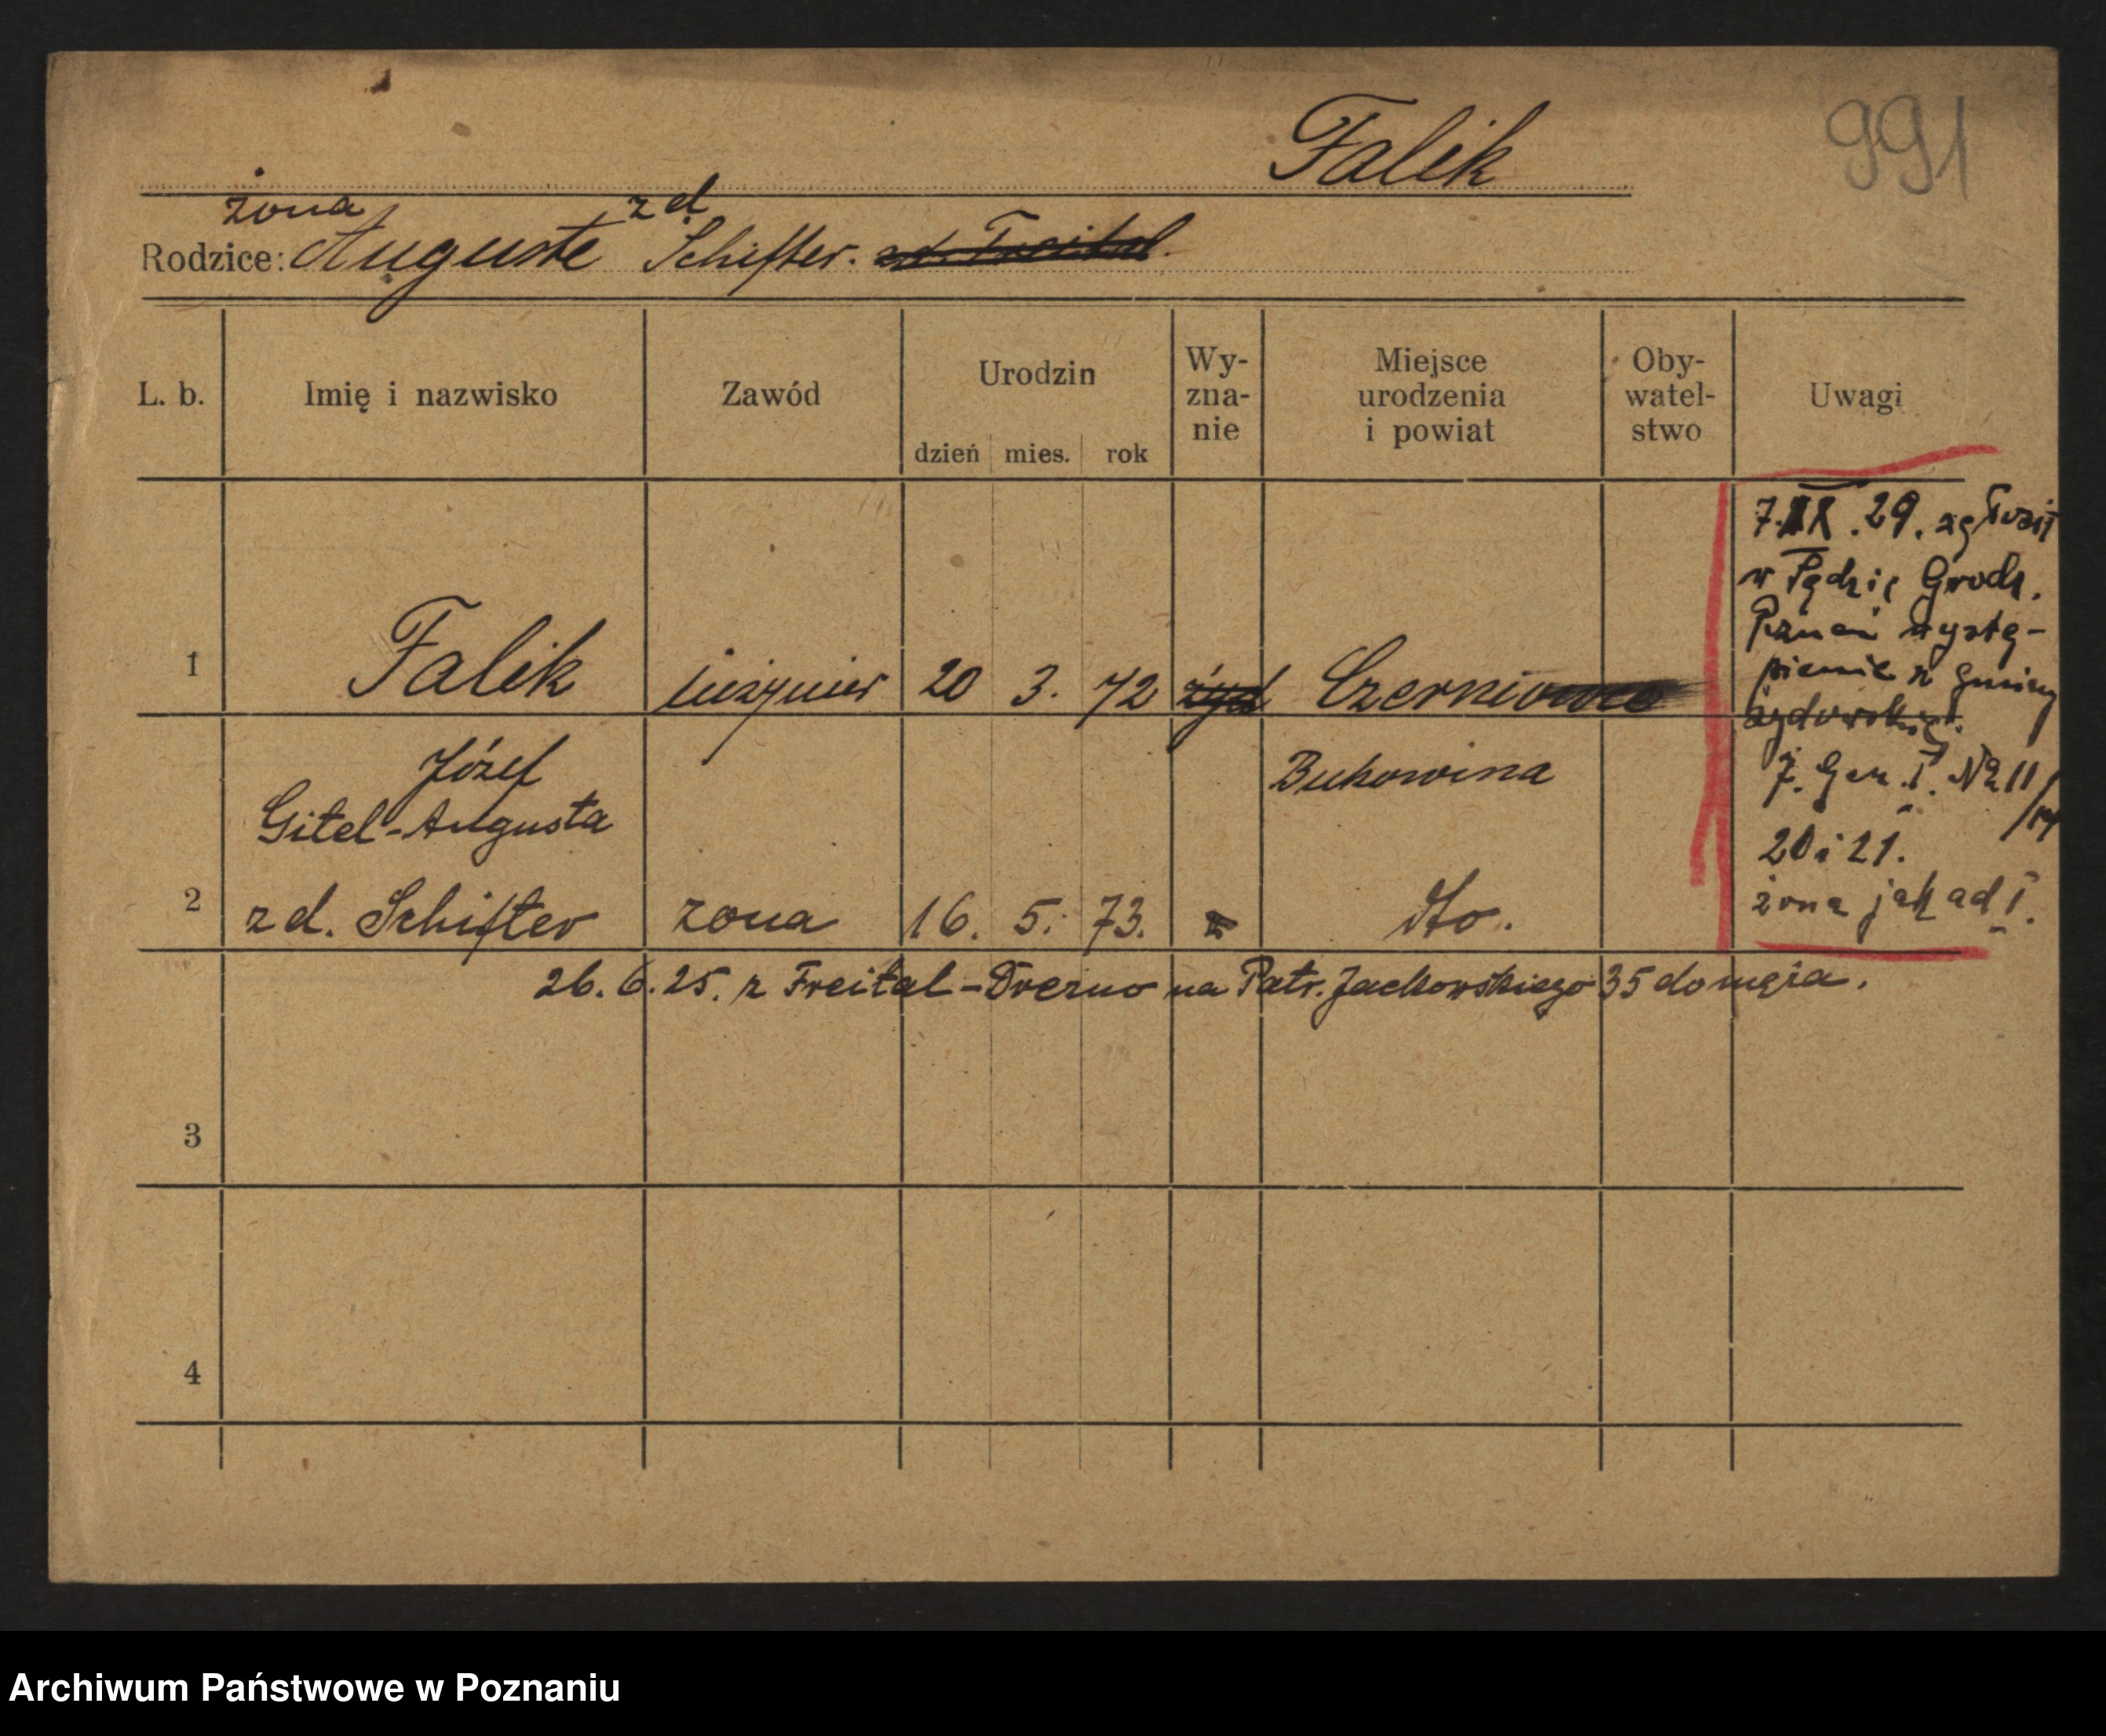 Falik
991
żona zd
Rodzice: Auguste Schifter. zd. Freital.
L. b. Imię i nazwisko Zawód Urodzin dzień mies. rok Wy-zna-nie Miejsce urodzenia i powiat Oby-watel-stwo Uwagi
1 Falik inżynier 20 3. 72 żyd Czerniowce
Józef Bukowina
Gitel-Augusta
2 zd. Schifter żona 16. 5. 73. dto.
7.IX.29. zgłosił
w Sądzie Grodz.
Poznań wystę-
pienie z gminy
żydowskiej.
7. Gen. I. No 11/
20 i 21.
żona jak ad I.
26.6.25. z Freital-Drezno na Patr. Jackowskiego 35 do męża.
3
4
Archiwum Państwowe w Poznaniu